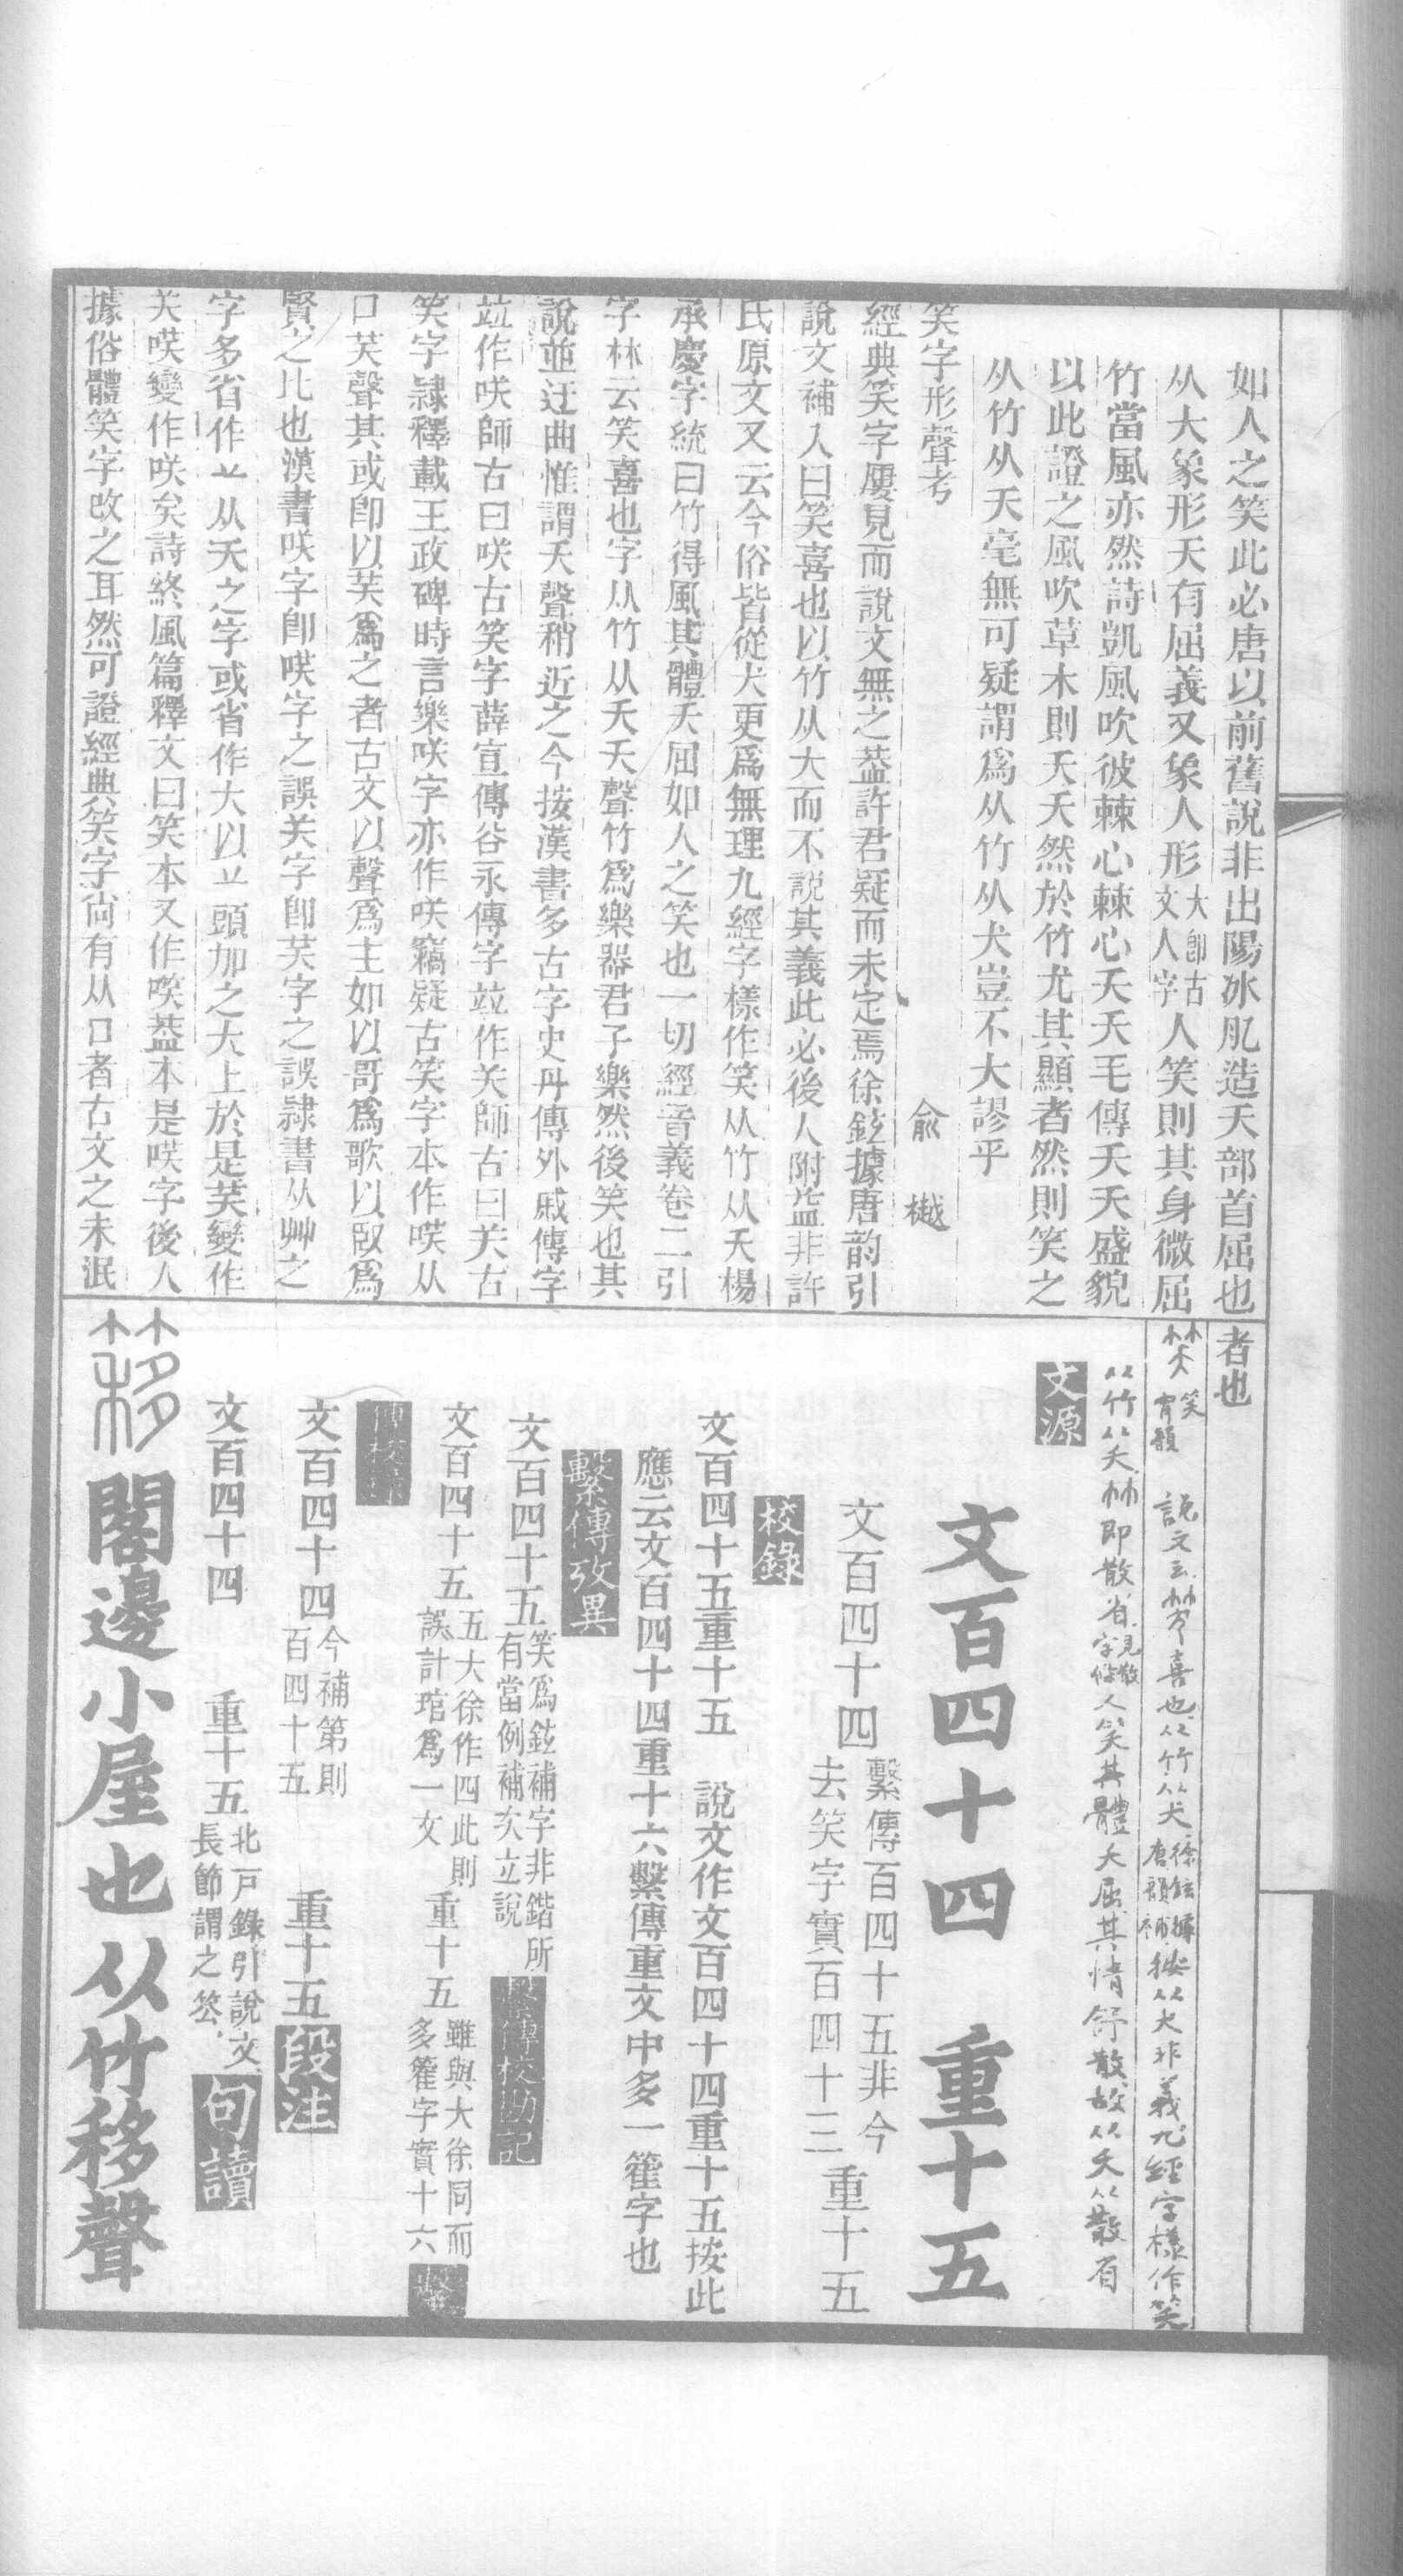 如人之笑此必唐以前舊說非出陽冰肊造夭部首屈也
从大象形夭有屈義又象人形大卽古文人字人笑則其身微屈
竹當風亦然詩凱風吹彼棘心棘心夭夭毛傳夭夭盛貌
以此證之風吹草木則夭夭然於竹尤其顯者然則笑之
从竹从夭毫無可疑謂爲从竹从犬豈不大謬乎
笑字形聲考　俞樾
經典笑字屢見而說文無之葢許君疑而未定焉徐鉉據唐韵引
說文補入曰笑喜也以竹从犬而不說其義此必後人附益非許
氏原文又云今俗皆從犬更爲無理九經字樣作笑从竹从夭楊
承慶字統曰竹得風其體夭屈如人之笑也一切經音義卷二引
字林云笑喜也字从竹从夭夭聲竹爲樂器君子樂然後笑也其
說並迂曲惟謂夭聲稍近之今按漢書多古字史丹傳外戚傳字
竝作咲師古曰咲古笑字薛宣傳谷永傳字竝作关師古曰关古
笑字隷釋載王政碑時言樂咲字亦作咲竊疑古笑字本作㗛从
口芺聲其或卽以芺爲之者古文以聲爲主如以哥爲歌以臤爲
賢之比也漢書咲字卽㗛字之誤关字卽芺字之誤隷書从艸之
字多省作䒑从夭之字或省作大以䒑頭加之大上於是芺變作
关㗛變作咲矣詩終風篇釋文曰笑本又作㗛葢本是㗛字後人
據俗體笑字改之耳然可證經典笑字尙有从口者古文之未泯
者也
笑 笑宵韻 說文云笑喜也从竹从犬徐鉉據唐韻補按从犬非義九經字樣作笑
从竹从夭𣏟即散省見散字條人笑其體夭屈其情舒散故从夭从散省
文源
文百四十四　重十五
文百四十四 繫傳百四十五非今去笑字實百四十三 重十五
校錄
文百四十五重十五　說文作文百四十四重十五按此
應云文百四十四重十六繫傳重文中多一籆字也
繫傳攷異
文百四十五 笑爲鉉補字非鍇所有當例補次立說 繫傳校勘記
文百四十五 五大徐作四此則誤計琯爲一文 重十五 雖與大徐同而多籆字實十六 繫
傳校錄
文百四十四 今補第則百四十五 重十五 段注
文百四十四　重十五 北戸錄引說文長節謂之䇗 句讀
簃 閣邊小屋也从竹移聲